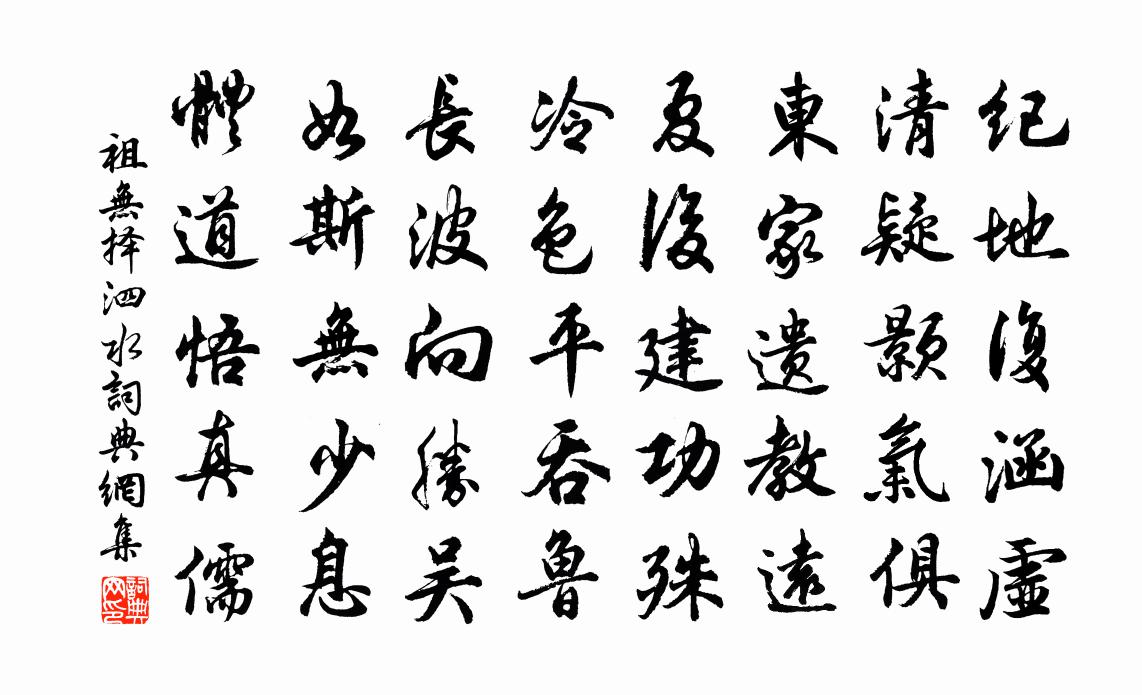 纪地復涵虛
清疑顥氣俱
東家遗教遠
夏后建功殊
冷色平吞魯
長波向勝吴
如斯無少息
體道悟真儒
祖無择泗水詞典網集
詞典网印